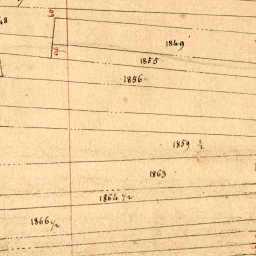 1849
1855
1856
1859 ½
1863
1864 ½
1866 ½